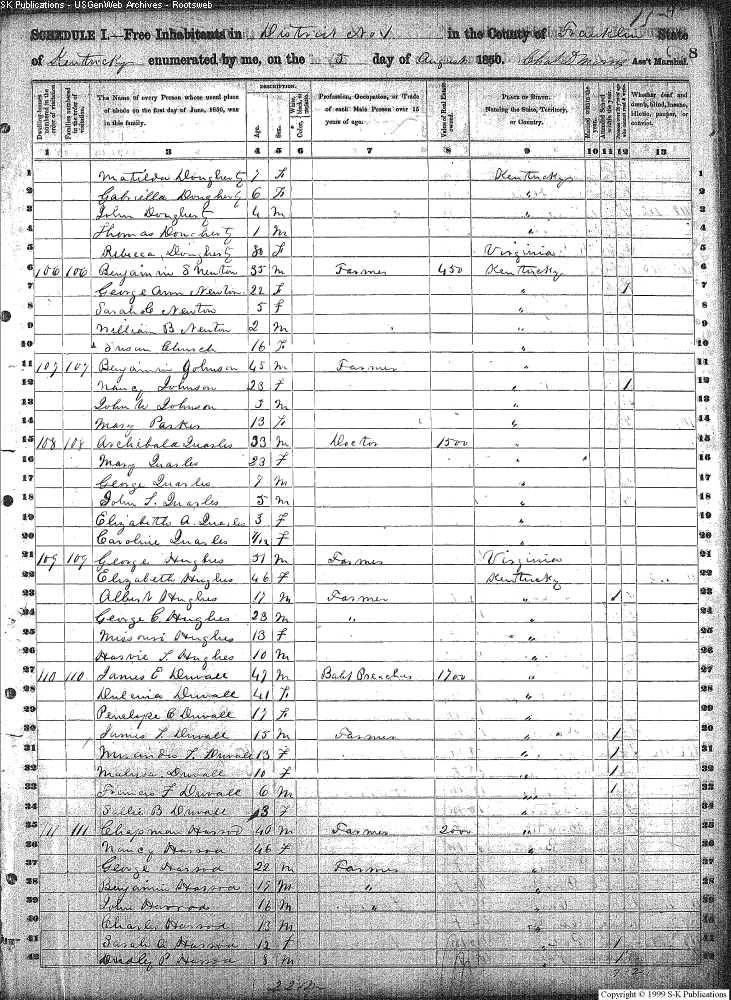 SK Publications - USGenWeb Archives - Rootsweb
SCHEDULE I.—Free Inhabitants in District No 1 in the County of Franklin State
of Kentucky enumerated by me, on the day of August 1850. Ass't Marshal. 8
Dwelling-houses numbered in the order of visitation.
Families numbered in the order of visitation.
The Name of every Person whose usual place of abode on the first day of June, 1850, was in this family.
DESCRIPTION.
Age.
Sex.
Color,
Profession, Occupation, or Trade of each Male Person over 15 years of age.
Value of Real Estate owned.
PLACE OF BIRTH. Naming the State, Territory, or Country.
Married within the year.
Whether deaf and dumb, blind, insane, idiotic, pauper, or convict.
1 2 3 4 5 6 7 8 9 10 11 12 13
1 Matilda Dougherty 7 F Kentucky 1
2 Gabriella Dougherty 6 F " 2
3 John Dougherty 4 M " 3
4 Thomas Dougherty 1 M " 4
5 Rebecca Dougherty 80 F Virginia 5
6 106 106 Benjamin S Newton 35 M Farmer 450 Kentucky 6
7 George Ann Newton 22 F " 1 7
8 Sarah C Newton 5 F " 8
9 William B Newton 2 M " 9
10 Susan Church 16 F " 10
11 107 107 Benjamin Johnson 45 M Farmer " 11
12 Nancy Johnson 23 F " 1 12
13 John W Johnson 5 M " 13
14 Mary Parker 13 F " 14
15 108 108 Archibald Quarles 33 M Doctor 1500 " 15
16 Mary Quarles 23 F " 16
17 George Quarles 7 M " 17
18 John T. Quarles 5 M " 18
19 Elizabeth A. Quarles 3 F " 19
20 Caroline Quarles F " 20
21 109 109 George Hughes 51 M Farmer Virginia 21
22 Elizabeth Hughes 46 F Kentucky 22
23 Albert Hughes 17 M Farmer " 1 23
24 George C. Hughes 23 M " " 24
25 Missouri Hughes 13 F " 25
26 Harvie T. Hughes 10 M " 26
27 110 110 James E Duvall 47 M Babt Preacher 1700 " 27
28 Duvall 41 F " 28
29 Penelope C Duvall 17 F " 29
30 James T. Duvall 15 M Farmer " 1 30
31 F. Duvall 13 F " 1 31
32 Malissa Duvall 10 F " 1 32
33 Francis F Duvall 6 M " 1 33
34 Sallie B Duvall 3 F " 34
35 111 111 Chapman Harrod 40 M Farmer 2000 " 35
36 Nancy Harrod 46 F " 36
37 George Harrod 22 M Farmer " 37
38 Benjamin Harrod 19 M " " 38
39 John Harrod 16 M " " 39
40 Charles Harrod 13 M " 40
41 Sarah A Harrod 12 F " 1 41
42 Dudley P Harrod 8 M " 1 42
Copyright © 1999 S-K Publications